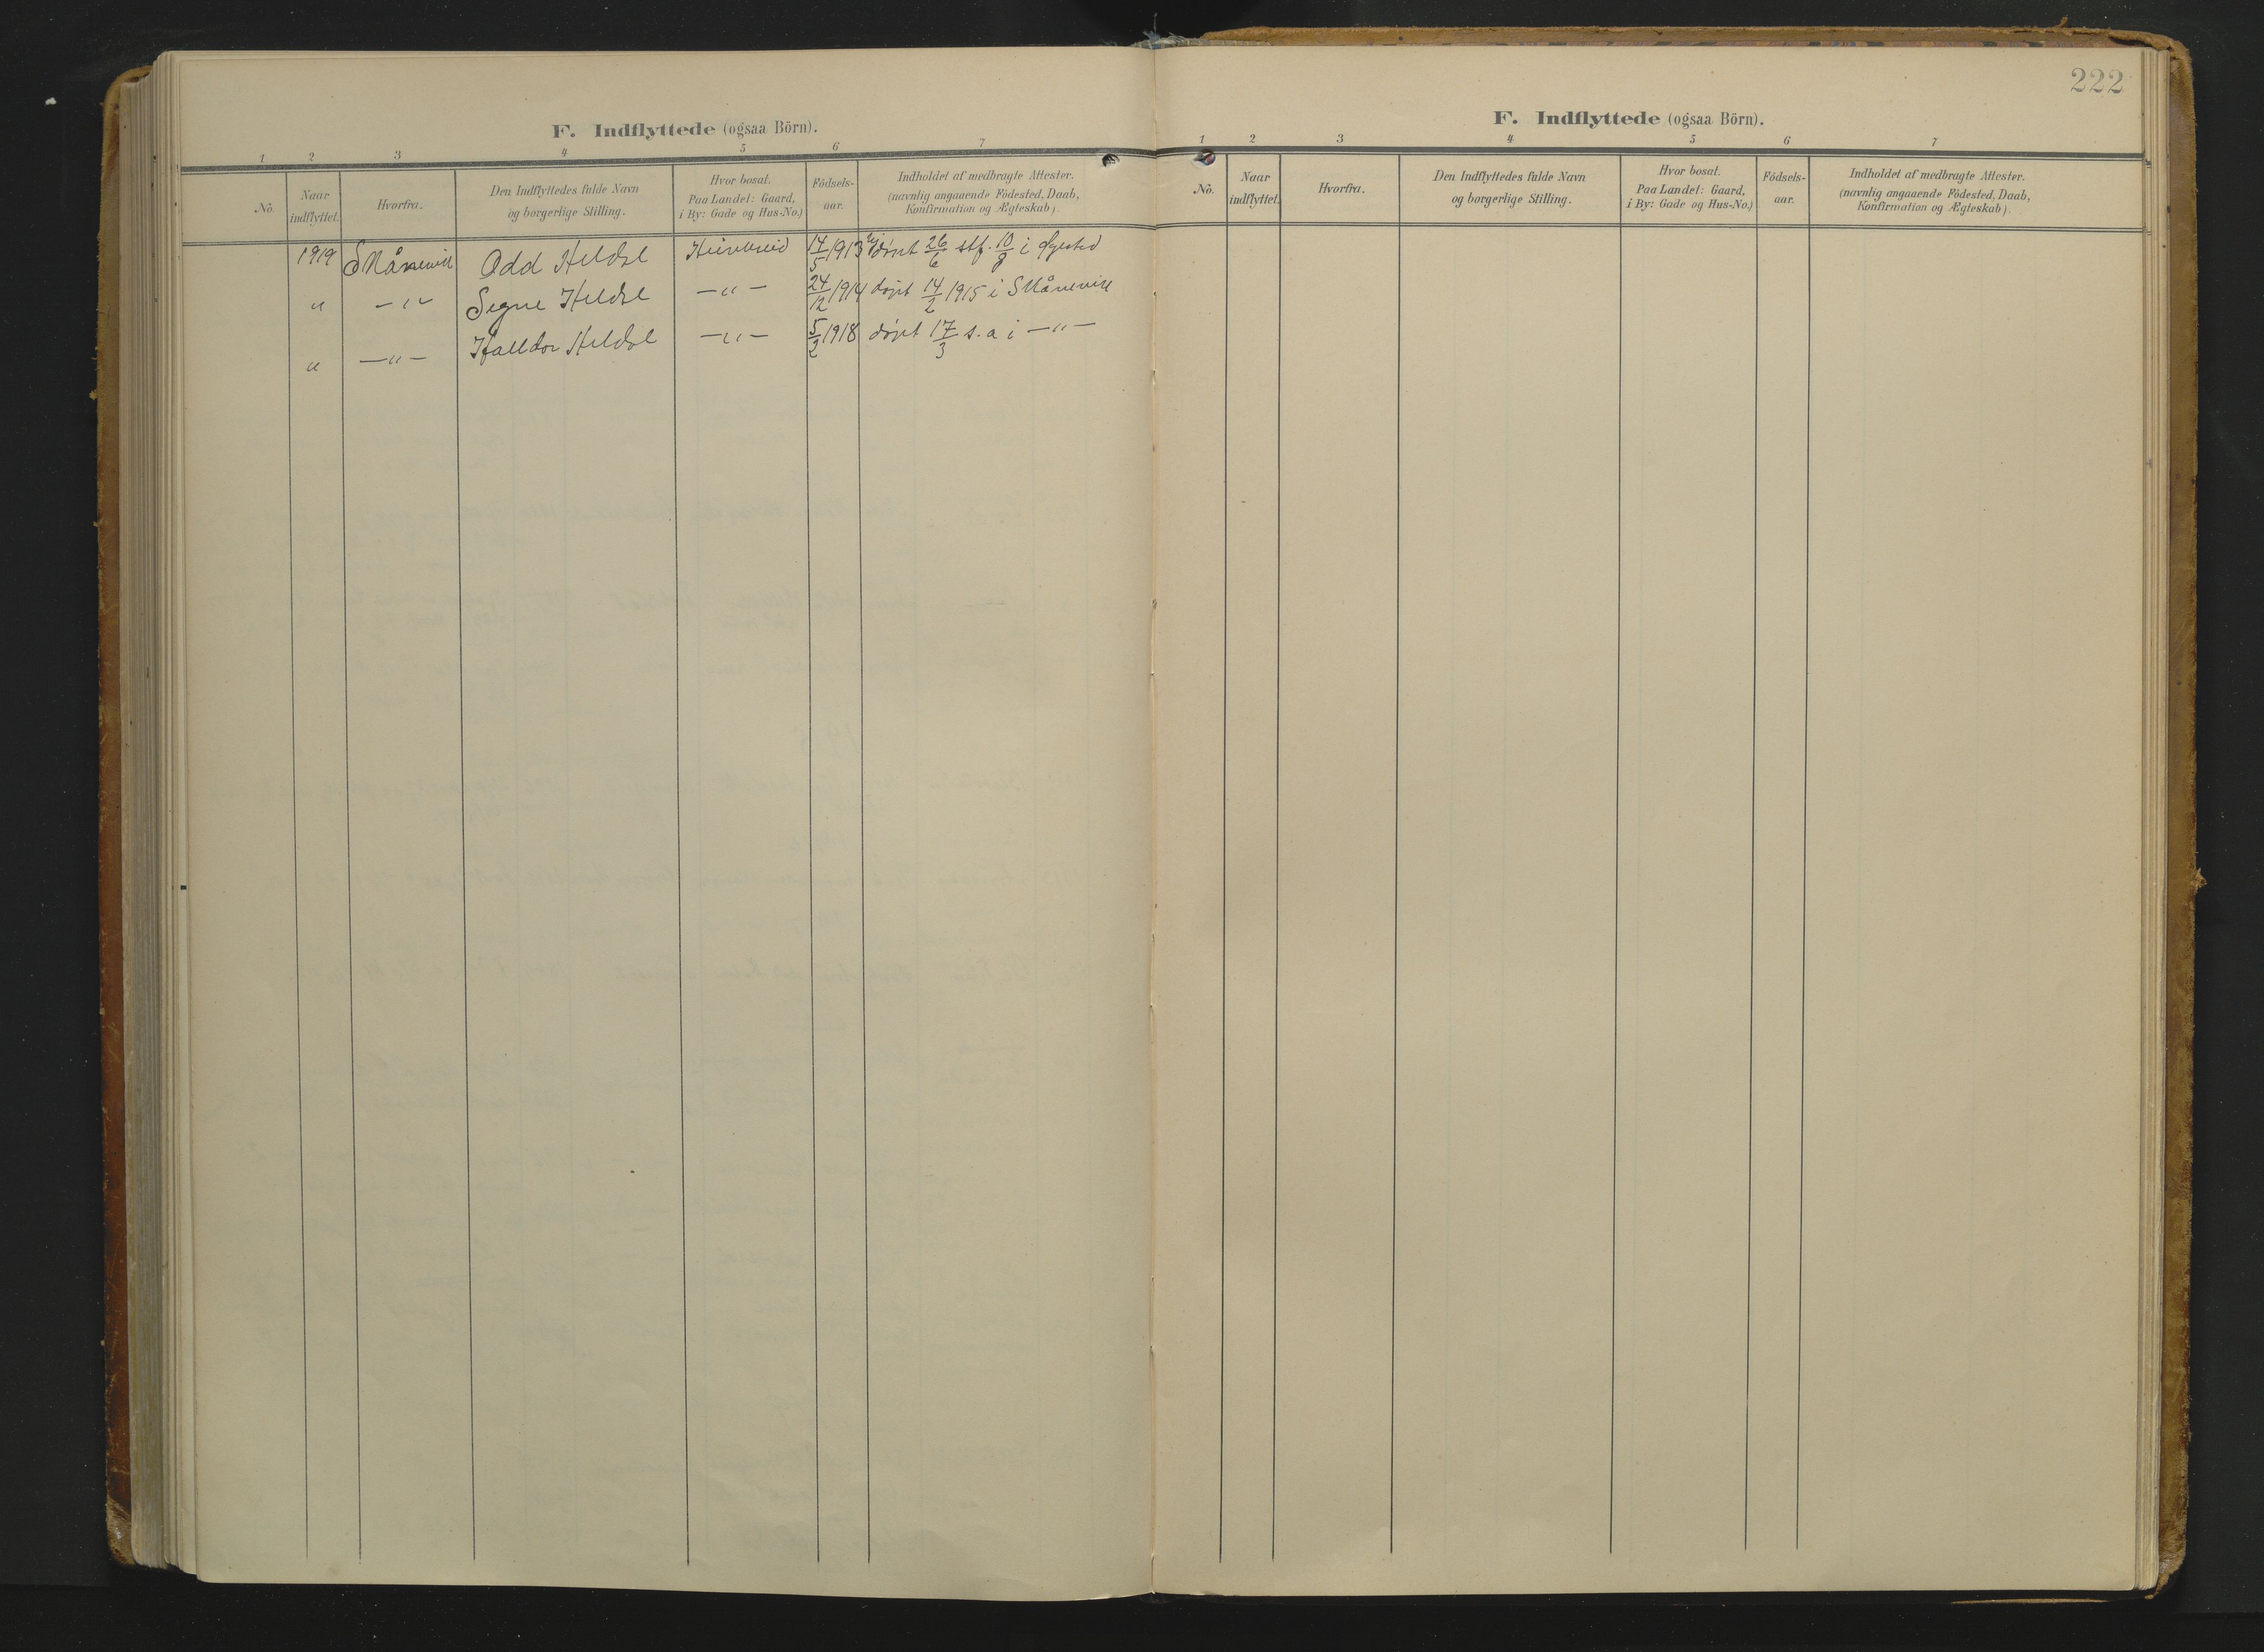 222
F. Indflyttede (ogsaa Börn).
1 2 3 4 5 6 7
No. Naar indflyttet. Hvorfra. Den Indflyttedes fulde Navn og borgerlige Stilling. Hvor bosat. Paa Landet: Gaard, i By: Gade og Hus-No.) Födsels-aar. Indholdet af medbragte Attester. (navnlig angaaende Födested, Daab, Konfirmation og Ægteskab).
1919 Skånevik Odd Heldal 14/5 1913 døpt 26/6 stf. 10/8 i Øyestad
" -"- Signe Heldal -"- 24/12 1914 døpt 14/2 1915 i Skånevik
" -"- Halldor Heldal -"- 5/2 1918 døpt 17/3 s.a i -"-
F. Indflyttede (ogsaa Börn).
1 2 3 4 5 6 7
No. Naar indflyttet. Hvorfra. Den Indflyttedes fulde Navn og borgerlige Stilling. Hvor bosat. Paa Landet: Gaard, i By: Gade og Hus-No.) Födsels-aar. Indholdet af medbragte Attester. (navnlig angaaende Födested, Daab, Konfirmation og Ægteskab).